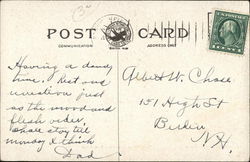 POST CARD
COMMUNICATION
ADDRESS ONLY
Having a dandy
time. Rest and
recreation just
as the mood and
flesh order,
shall stay til
monday I think
Dad
Albert W. Chase
151 High St
Berlin
N.H.